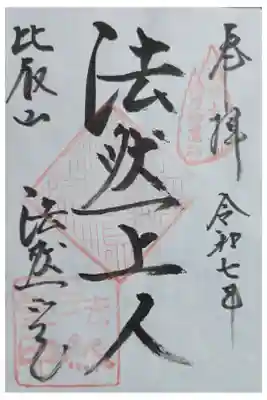 奉拝
令和七年
法然上人
比叡山
法然堂